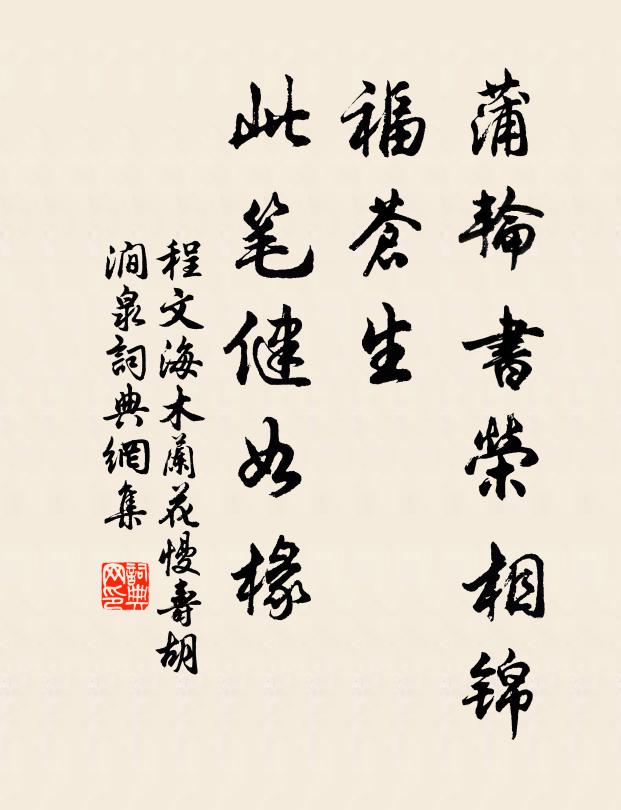 蒲輪書榮相錦
福蒼生
此笔健如椽
程文海木蘭花慢壽胡
澗泉詞典網集
詞典
网印